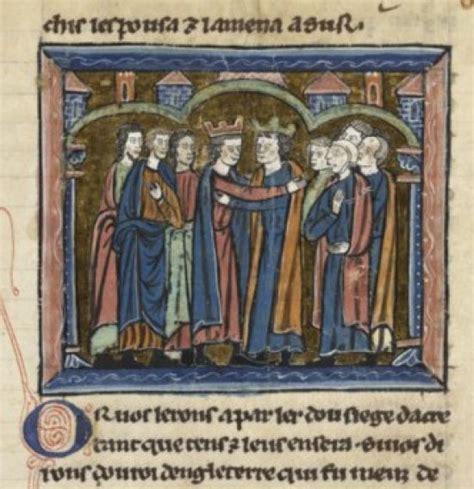 chis lespousa ⁊ lamena asur.
Or uos lerons aparler dou siege dacre
tant que tens ⁊ leus ensera. Si uos di
rons dou roi dengleterre qui fu meuz de